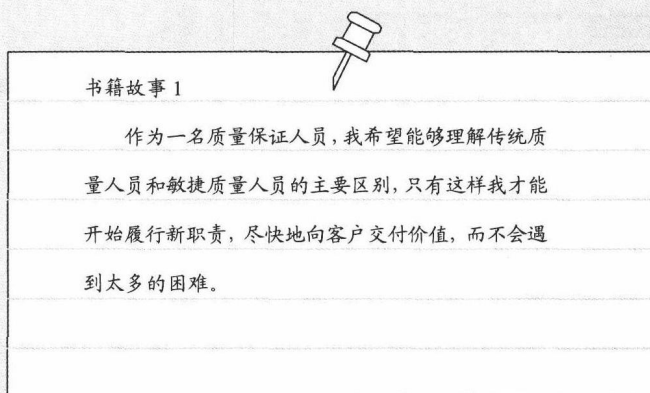 书籍故事 1
作为一名质量保证人员,我希望能够理解传统质
量人员和敏捷质量人员的主要区别,只有这样我才能
开始履行新职责,尽快地向客户交付价值,而不会遇
到太多的困难。